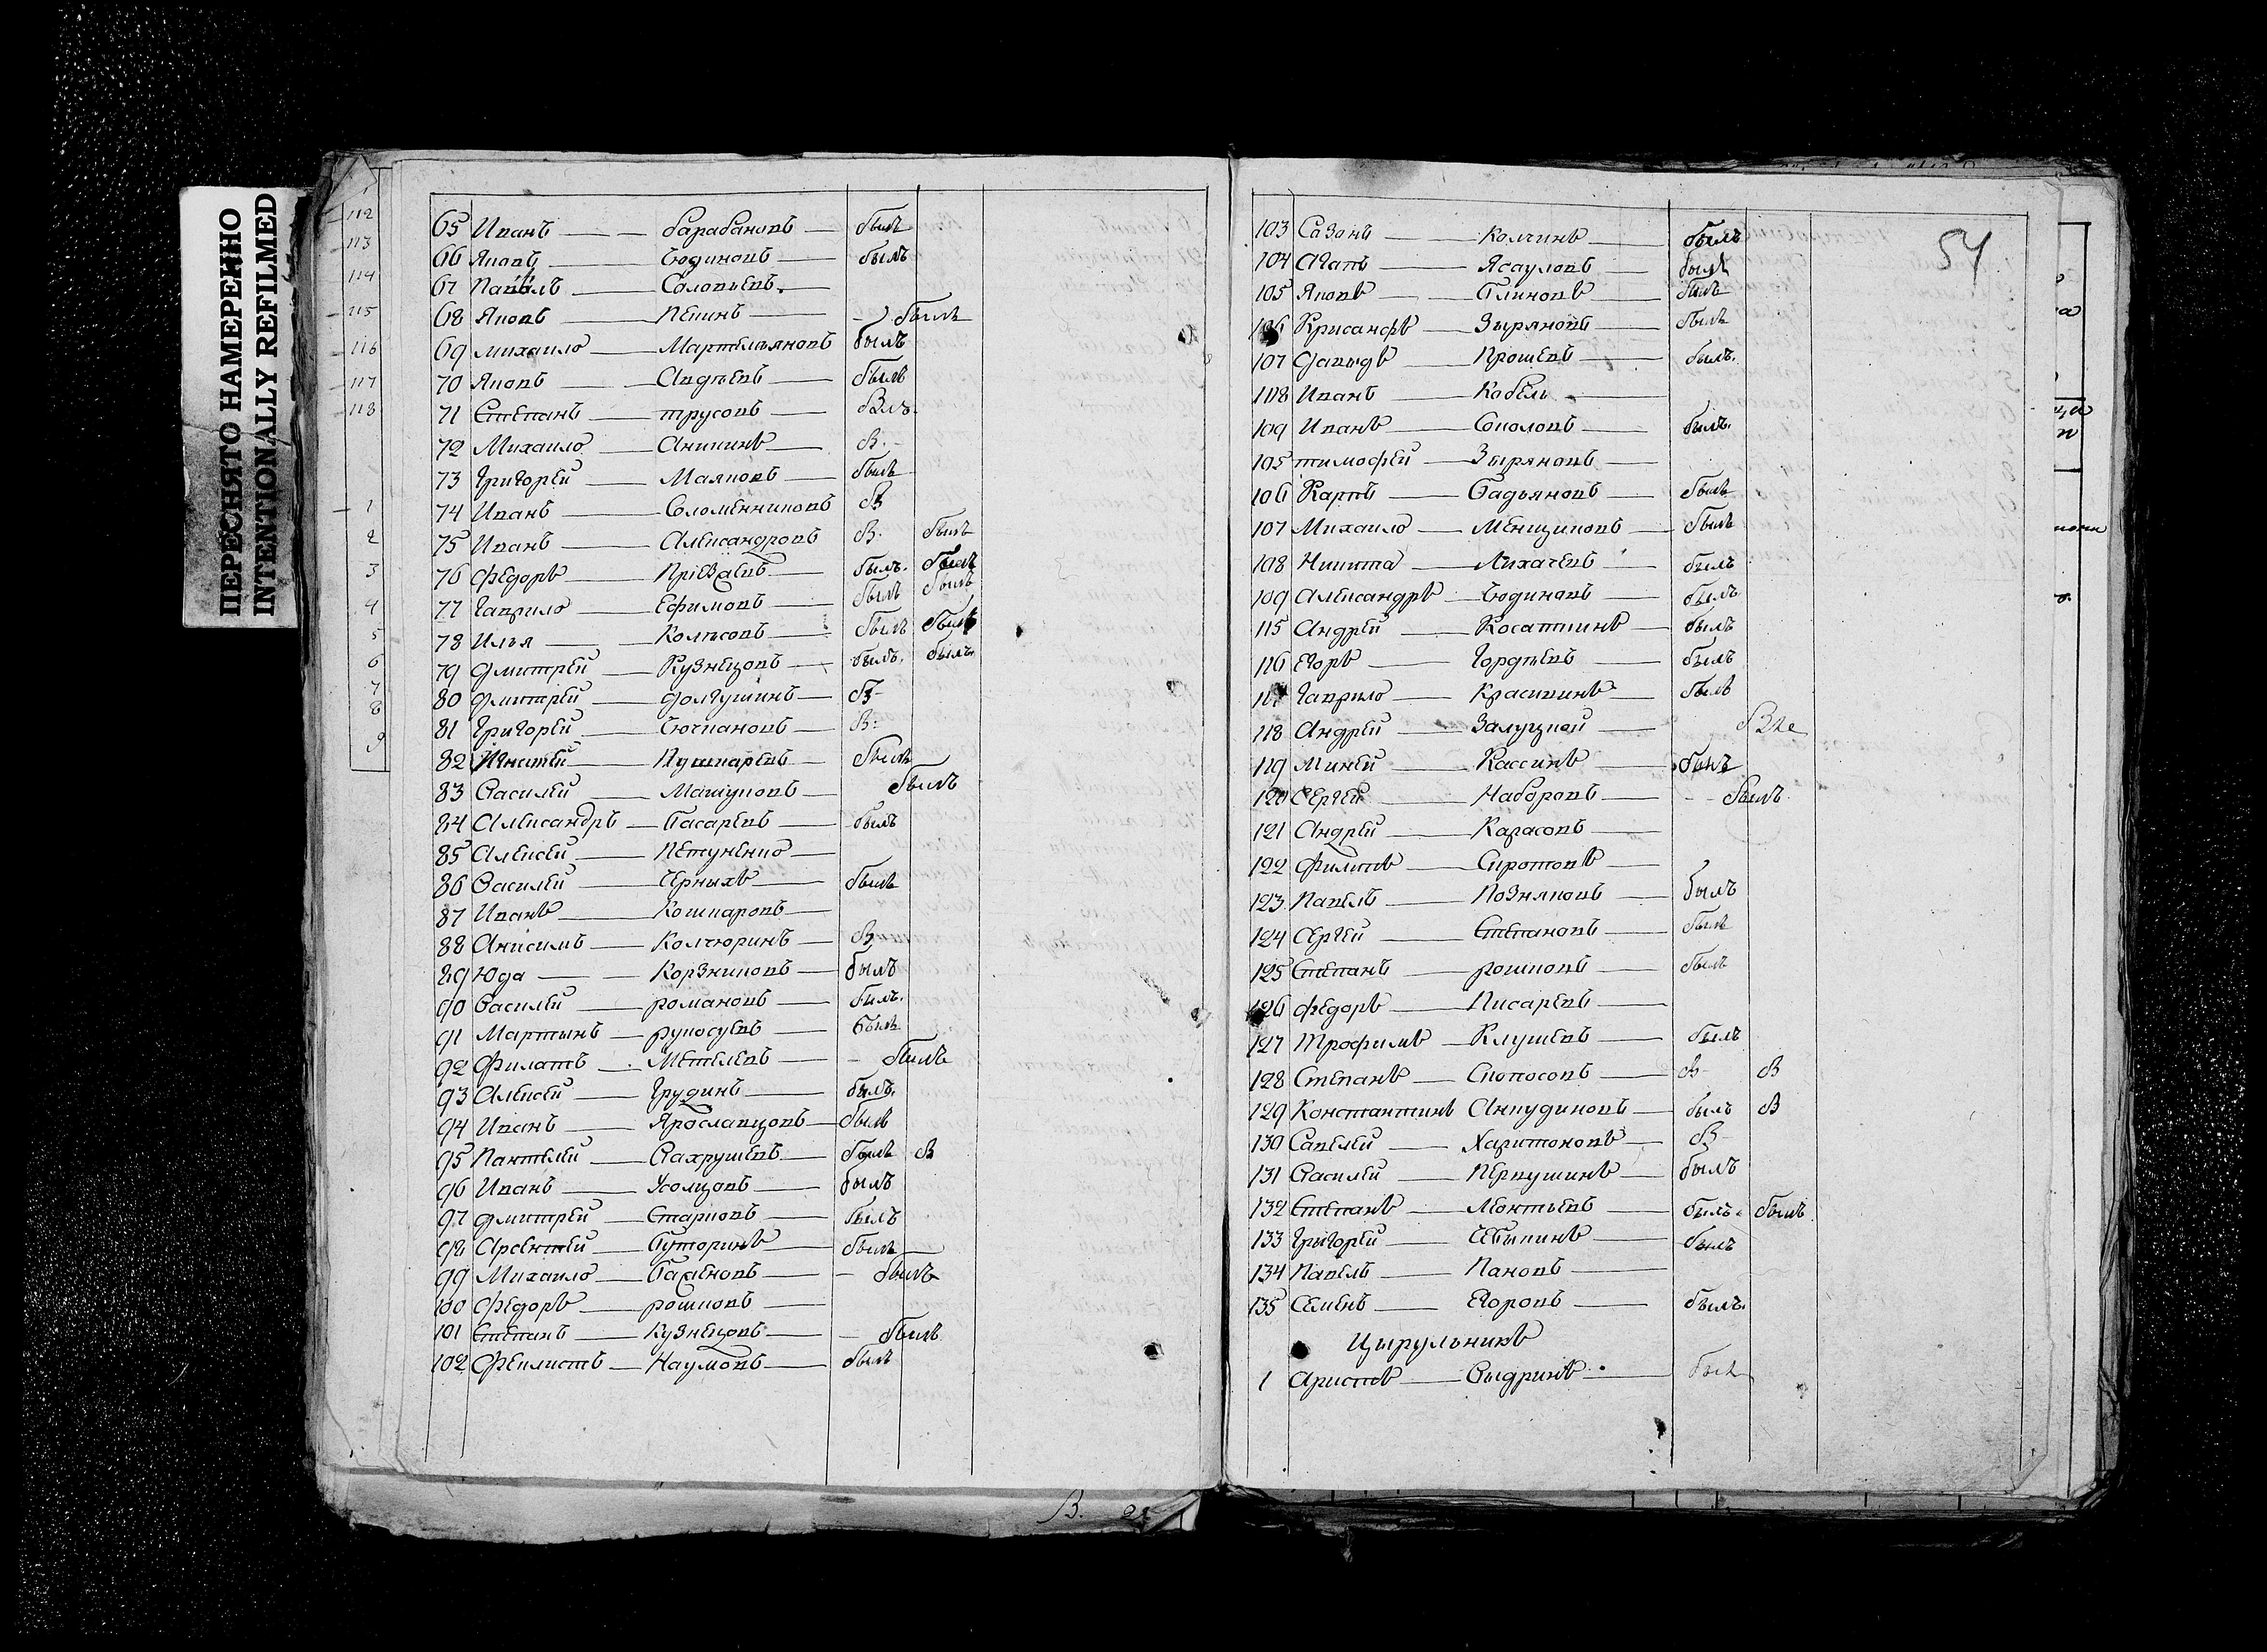 ПЕРЕСНЯТО НАМЕРЕННО
INTENTIONALLY REFILMED
112
113
114
115
116
117
118
1
2
3
4
5
6
7
8
9
65 Иванъ барабановъ былъ
66 Яковъ Юдиновъ былъ
67 Павелъ Соловьевъ
68 Яковъ Пенинъ былъ
69 михаило Мартемьяновъ былъ
70 Яковъ Авдѣевъ былъ
71 Степанъ трусовъ
72 Михаило Аникинъ В.
73 Григорей Маяковъ былъ
74 Иванъ Соломенниковъ В
75 Иванъ Александровъ В. былъ
76 Федоръ былъ. былъ
77 Гаврило Ефимовъ былъ былъ
78 Илья Колѣсовъ былъ былъ
79 Дмитрей Кузнецовъ былъ. былъ.
80 Дмитрей Долгушинъ В
81 Григорей В:
82 Игнатей Пушкаревъ былъ
83 Василей былъ
84 Александръ Басаревъ былъ
85 Алексей Петученко
86 Василей Черныхъ былъ
87 Иванъ Кошкаровъ
88 Анисимъ Колчюринъ В
89 Юда Корзниковъ былъ
90 Василей романовъ былъ.
91 Мартынъ рукосуевъ былъ
92 Филатъ Метелевъ былъ
93 Алексей Грудинъ былъ.
94 Иванъ Ярославцовъ былъ
95 Пантелей Вахрушевъ былъ В
96 Иванъ Усолцовъ былъ
97 Дмитрей Старковъ былъ
98 Арсентей Буторинъ былъ
99 Михаило Баженовъ былъ
100 Федоръ рошковъ
101 Степанъ Кузнецовъ былъ
102 Феклистъ Наумовъ былъ
54
103 Сазонъ Колчинъ былъ
104 Агапъ Ясауловъ былъ
105 Яковъ Блиновъ былъ
106 Крисанфъ Зыряновъ былъ
107 Давыдъ Прошевъ былъ.
108 Иванъ Кобель
109 Иванъ Соколовъ былъ.
105 тимофей Зыряновъ
106 Карпъ Бадьяновъ былъ
107 Михаило Менщиковъ былъ
108 Никита Лихачевъ былъ
109 Александръ Юдиновъ былъ
115 Андрей Косаткинъ былъ
116 Егоръ Гордѣевъ былъ
117 Гаврило Красикинъ былъ
118 Андрей Залуцкой
119 Миней Кассинъ былъ
120 Сергей Наборовъ былъ
121 Андрей Карасовъ
122 Филипъ Сиротовъ
123 Павелъ Позняковъ былъ
124 Сергей Степановъ былъ
125 Степанъ рошковъ былъ
126 Федоръ Писаревъ
127 Трофимъ Клушевъ былъ
128 Степанъ Скопосовъ В В
129 Константинъ Анкудиновъ былъ В
130 Савелей Харитоновъ В
131 Василей Перкушинъ былъ
132 Степанъ Леонтьевъ былъ. былъ
133 Григорей Себыкинъ былъ
134 Павелъ Пановъ
135 Семенъ Егоровъ былъ.
Цырульникъ
1 Ариспъ Выдринъ былъ
В.